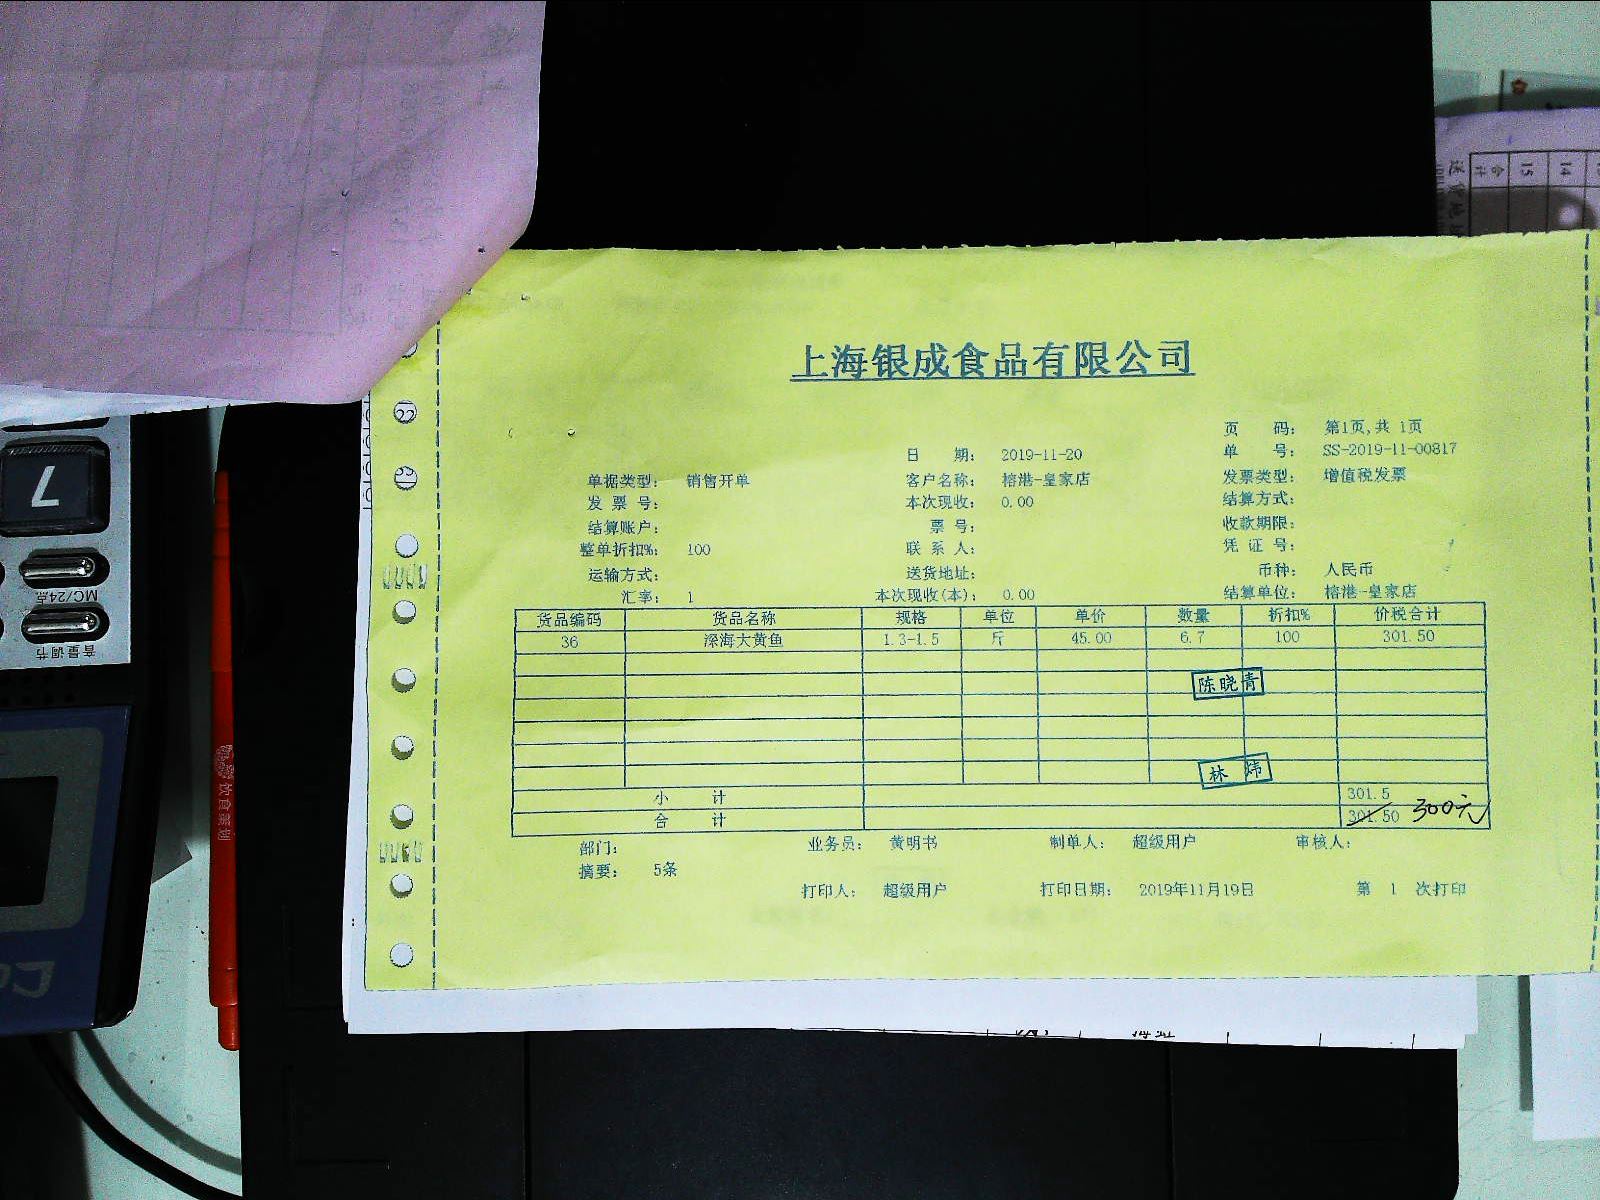 上海银成食品有限公司
页 码: 第1页,共 1页
日 期: 2019-11-20 单 号: SS-2019-11-00817
单据类型: 销售开单 客户名称: 榕港-皇家店 发票类型: 增值税发票
发 票 号: 本次现收: 0.00 结算方式:
结算账户: 票 号: 收款期限:
整单折扣%: 100 联 系 人: 凭 证 号:
运输方式: 送货地址: 币种: 人民币
汇率: 1 本次现收(本): 0.00 结算单位: 榕港-皇家店
货品编码 货品名称 规格 单位 单价 数量 折扣% 价税合计
36 深海大黄鱼 1.3-1.5 斤 45.00 6.7 100 301.50
陈晓青
林 炜
小 计 301.5
合 计 301.50 300元
部门: 业务员: 黄明书 制单人: 超级用户 审核人:
摘要: 5条
打印人: 超级用户 打印日期: 2019年11月19日 第 1 次打印
22
23
7
MC/24点
音量调节
饮食策划
合计
15
14